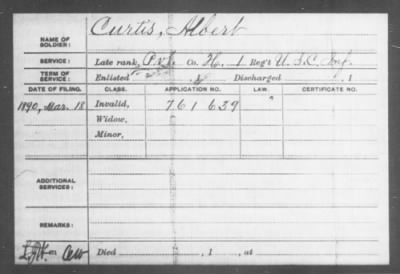 NAME OF SOLDIER: Curtis, Albert
SERVICE: Late rank, Pvt. Co. H, 1 Reg't U.S.C. Inf.
TERM OF SERVICE: Enlisted , 1 Discharged , 1
DATE OF FILING. CLASS. APPLICATION NO. LAW. CERTIFICATE NO.
1890, Mar. 18 Invalid, 761 639
Widow,
Minor,
ADDITIONAL SERVICES:
REMARKS:
Died , 1 , at